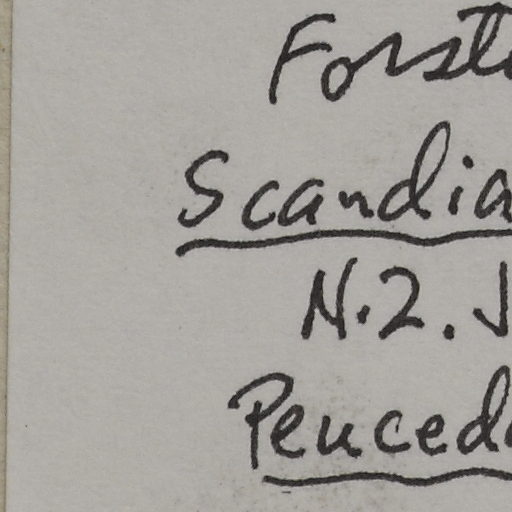 Forst
Scandia
N.2. J
Peuceda